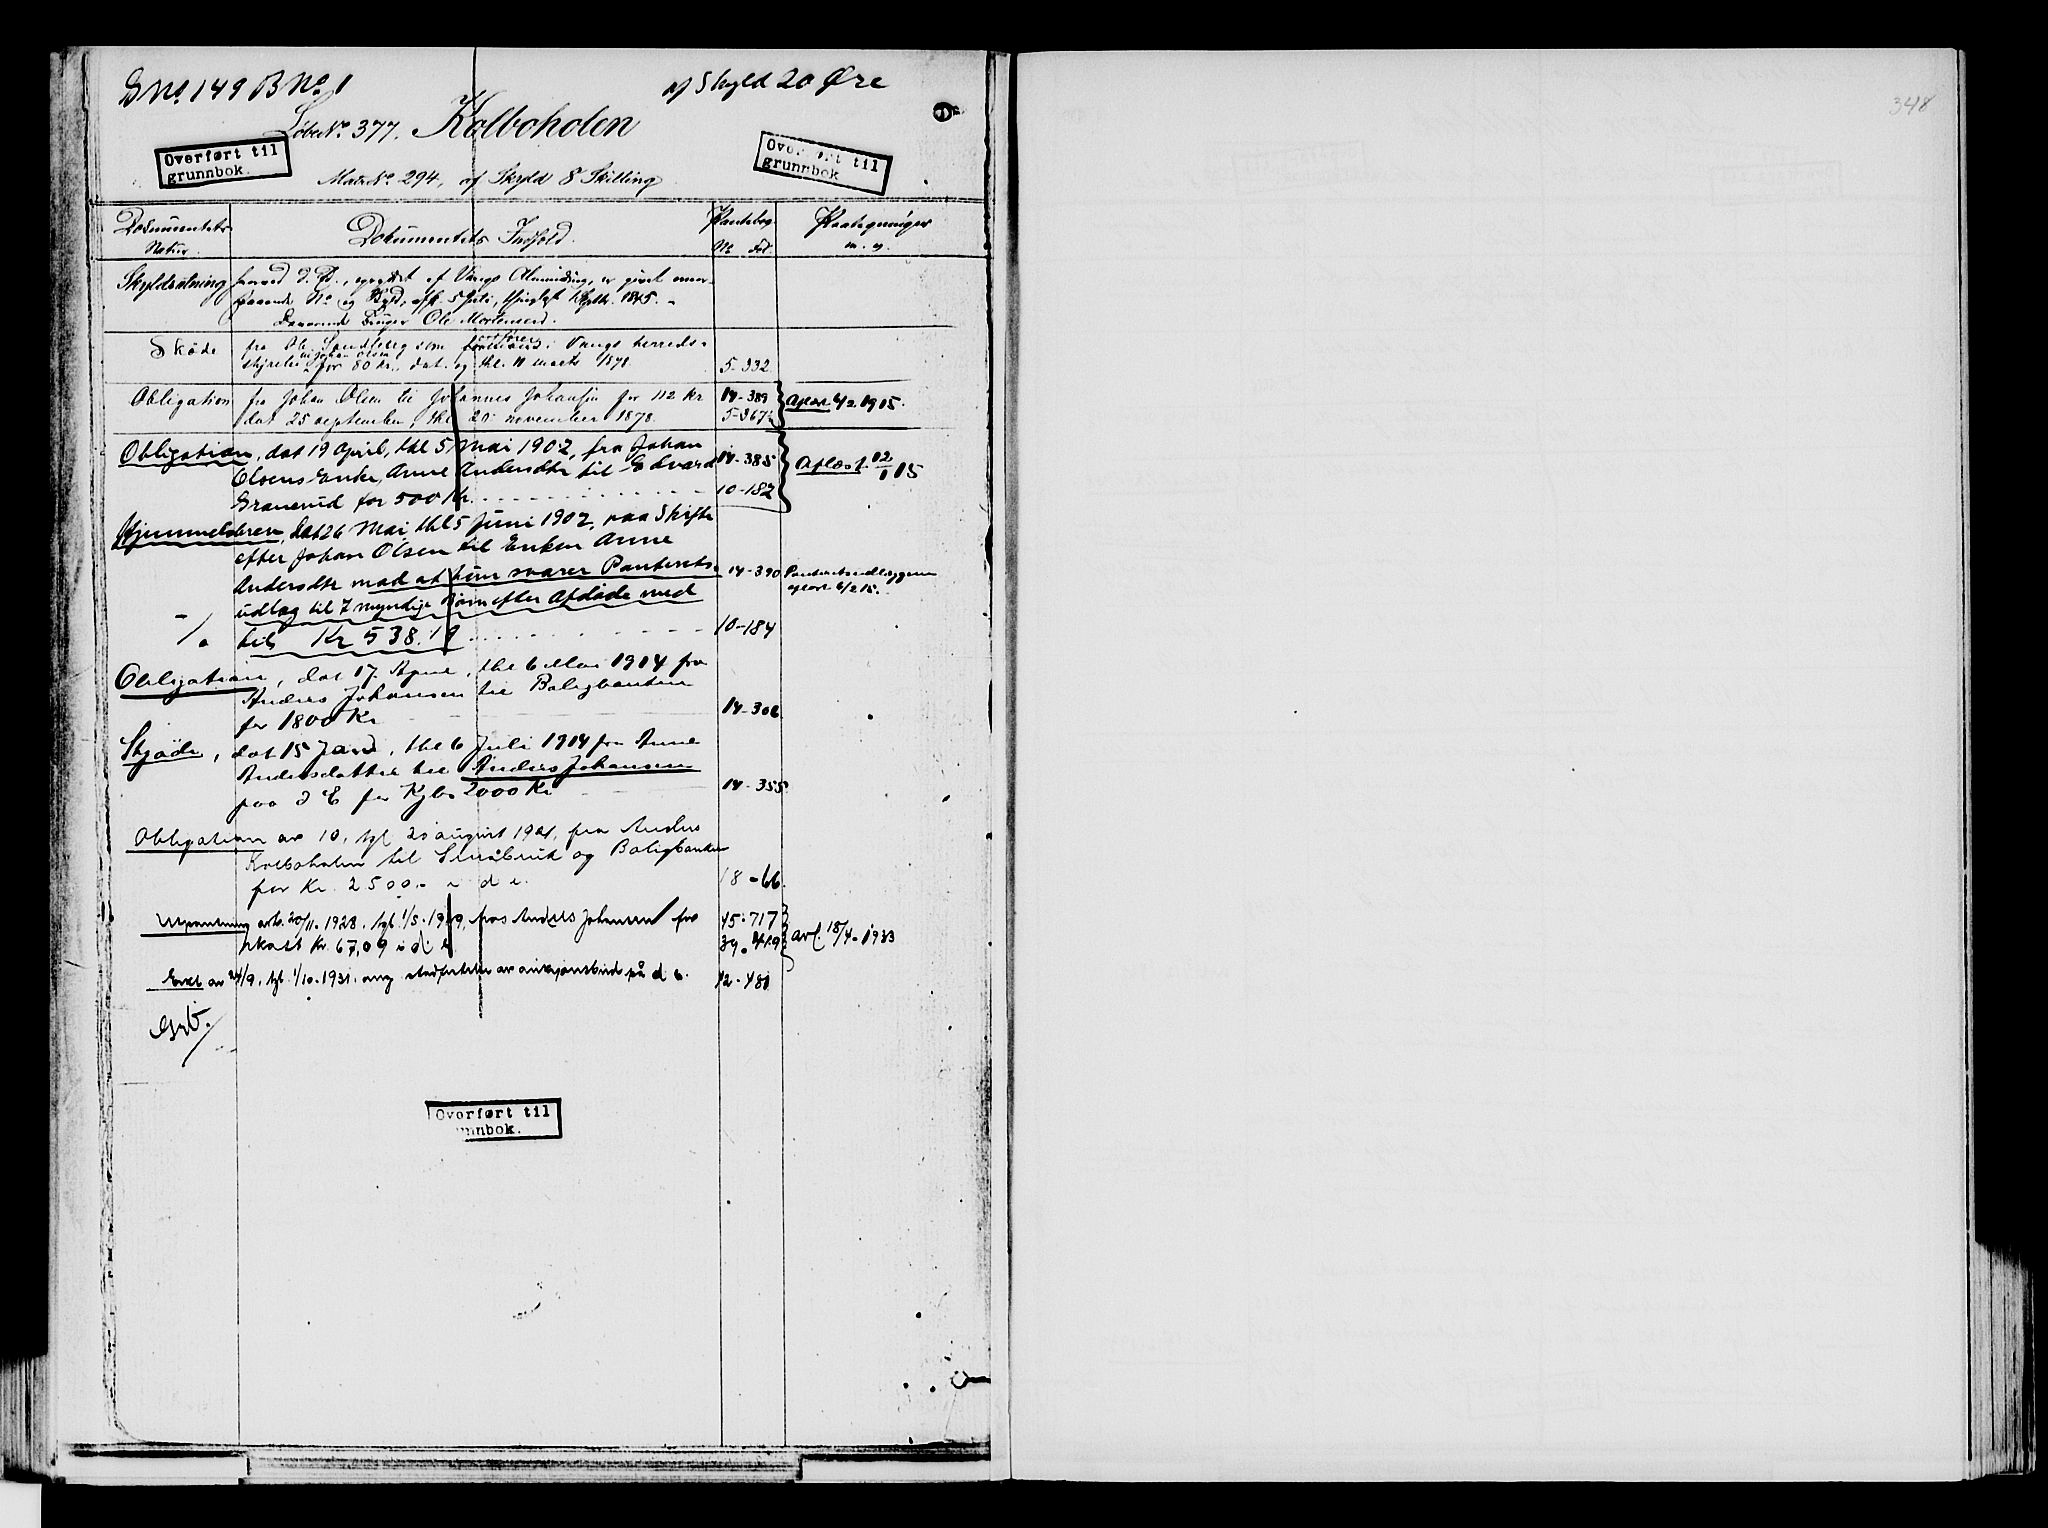 G No. 149 B No. 1
af Skyld 20 Øre
Løbe No. 377. Kolboholen
Overført til
grunnbok.
Overført til
grunnbok
Matr. No. 294, af Skyld 8 Skilling
348
Dokumentets Natur.
Dokumentets Indhold.
Pantebog No. Fol.
Paategninger m. v.
Skyldsætning hvorved d. Ed., af Vangs Alminding, er givet
No. og Skyld, afh. 5 Juli, thinglyst 1845.
Bruger Ole Mortensen.
Skøde fra Ole Sandberg som ordfører i Vangs herreds-
styrelse til Johan Olsen for 80 Kr., dat. og thl. 11 marts 1878. 5-332
Obligation fra Johan Olsen til Johannes Johansen for 112 Kr 14-389
dat 25 september, thl 20 november 1878. 5-367 Aflæst 4/2 1915.
Obligation, dat 19 April, thl 5 Mai 1902, fra Johan
Olsens Enke, Anne Andersdtr til Edvard 14-385 Aflæst 12/1 15
Granerud for 500 Kr. 10-182
Hjemmelsbrev, dat 26 Mai, thl 5 Juni 1902, paa Skifte
efter Johan Olsen til Enken Anne
Andersdtr mod at hun svarer Panterets- 14-390 Panteretsudlæggene
udlæg til 7 myndige Børn efter Afdøde med aflæst 4/2 15.
tils Kr 538.19 10-184
Obligation, dat 17. April, thl 6 Mai 1914 fra
Andres Johansen til Boligbanken
for 1800 Kr 14-306
Skjøde, dat 15 Jan, thl 6 Juli 1914 fra Anne
Andersdatter til Andres Johansen
paa d E for Kjbs 2000 Kr 14-355
Obligation av 10, tgl 20 august 1921, fra Andres
Kolboholen til Småbruk og Boligbanken
for Kr. 2500.- i d e. 18-66.
Utpantning avh. 20/11. 1928. tgl. 1/5. 1929, hos Andres Johansen for 45-717
skatt Kr. 67,09 i d e 39-419 avl. 18/4-1933
Erkl av 24/9, tgl. 1/10-1931. ang. stadfestelse av auksjonsbud på d e. 42-481
Overført til
grunnbok.